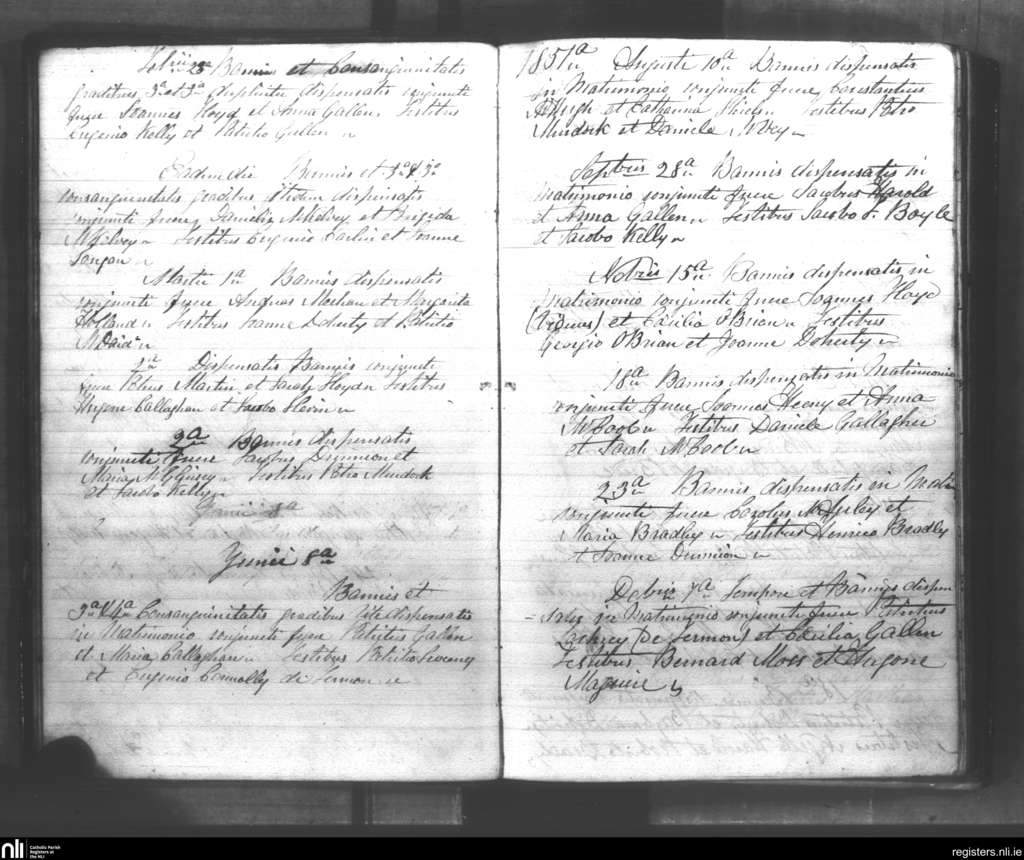 Bannis et Consanguinitatis
gradibus 3a et 3a dupliciter dispensatis conjuncti
fuere Joannes Floyd et Anna Gallen. Testibus
Eugenio Kelly et Patritio Gallen
Eodem die Bannis et 3o & 3o
consanguinitatis gradibus itidem dispensatis
conjuncti fuere McKelvey et Brigida
McKelvey Testibus Eugenio Carlin et Joanne

Martii 1a Bannis dispensatis
conjuncti fuere Andreas Meehan et Margarita
Holland Testibus Joanne Doherty et Patritio
McDaid
2a Dispensatis Bannis conjuncti
fuere Petrus Martin et Sarah Floyd Testibus
Eugene Callaghan et Jacobo Slevin
2a Bannis dispensatis
conjuncti fuere Jacobus Drumion et
Maria Testibus Petro Murdock
et Jacobo Kelly
Junii 8a
Junii 8a
Bannis et
3a & 4a Consanguinitatis gradibus rite dispensatis
in Matrimonio conjuncti fuere Patritius Gallen
et Maria Callaghan Testibus Patritio
et Eugenio Connolly de Termon
1851a Augusti 10a Bannis dispensatis
in Matrimonio conjuncti fuere Constantius
McHugh et Catherina Testibus Petro
Murdock et Daniele McVey
Septbris 28a Bannis dispensatis in
matrimonio conjuncti fuere Jacobus Harold
et Anna Gallen Testibus Jacobo F. Boyle
et Jacobo Kelly
Notbris 15a Bannis dispensatis in
matrimonio conjuncti fuere Joannes Floyd
(Viduus) et Cæcilia O'Brian Testibus
Georgio O'Brian et Joanne Doherty
18a Bannis dispensatis in Matrimonio
conjuncti fuere Joannes Heeny et Anna
McCool Testibus Daniele Gallagher
et Sarah McCool
23a Bannis dispensatis in Matri
conjuncti fuere Carolus McAnley et
Maria Bradley Testibus Henrico Bradley
et Joanne Drumion
Decbris 7a Tempore et Bannis dispen
-satis in Matrimonio conjuncti fuere Patritius
(de Termon) et Cæcilia Gallen
Testibus Bernard Moss et Hugone
Maguire
nli
Catholic Parish
Registers at
the NLI
registers.nli.ie